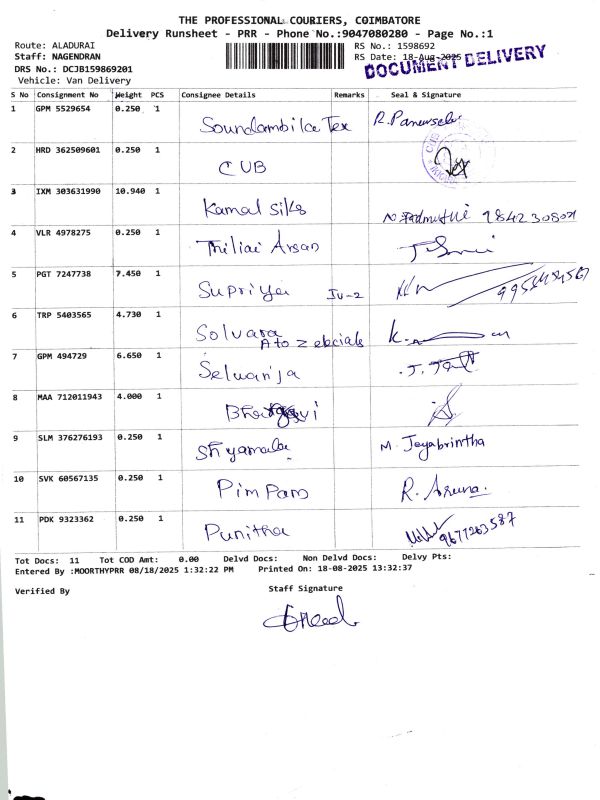 THE PROFESSIONAL COURIERS, COIMBATORE
Delivery Runsheet - PRR - Phone No.:9047080280 - Page No.:1
Route: ALADURAI
Staff: NAGENDRAN
DRS No.: DCJB159869201
Vehicle: Van Delivery
RS No.: 1598692
RS Date: 18-Aug-2025
DOCUMENT DELIVERY
S No Consignment No Weight PCS Consignee Details Remarks Seal & Signature
1 GPM 5529654 0.250 1 Soundambika Tex
2 HRD 362509601 0.250 1 CUB
3 IXM 303631990 10.940 1 Kamal Silks
4 VLR 4978275 0.250 1 Thillai Arsan
5 PGT 7247738 7.450 1 Supriya
6 TRP 5403565 4.730 1 Solvara
A to Z
7 GPM 494729 6.650 1 Selvanja
8 MAA 712011943 4.000 1
9 SLM 376276193 0.250 1 Shyamala M. Jeyabrintha
10 SVK 60567135 0.250 1 Pim Pam R. Aruna.
11 PDK 9323362 0.250 1 Punitha 9677263587
Tot Docs: 11 Tot COD Amt: 0.00 Delvd Docs: Non Delvd Docs: Delvy Pts:
Entered By :MOORTHYPRR 08/18/2025 1:32:22 PM Printed On: 18-08-2025 13:32:37
Verified By Staff Signature